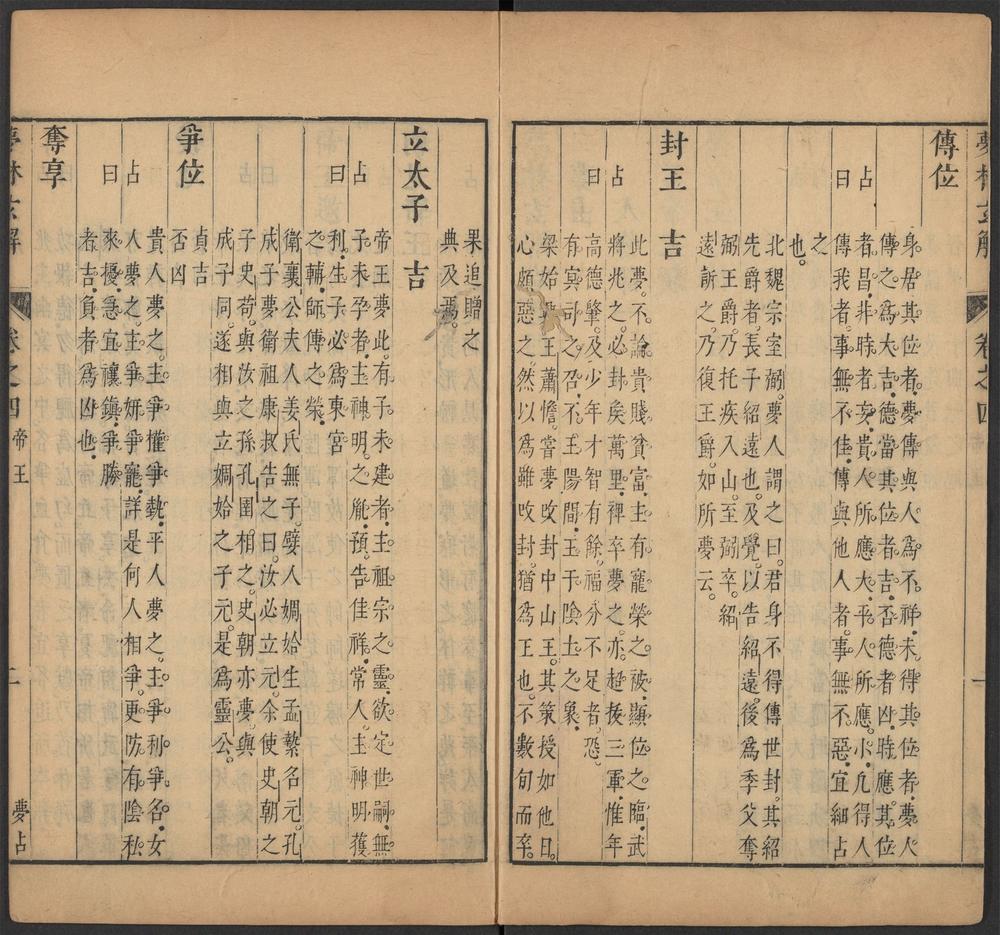 夢林玄解 卷之四 帝王 一
傳位
身居其位者夢傳與人為不祥未得其位者夢人
傳之為大吉德當其位者吉否德者凶時應其位
占 者昌非時者妄貴人所應大平人所應小凡得人
曰 傳我者事無不佳傳與他人者事無不惡宜細占
之
也
北魏宗室弼夢人謂之曰君身不得傳世封其紹
先爵者長子紹遠也及覺以告紹遠後為季父奪
弼王爵乃托疾入山至弼卒紹
遠訴之乃復王爵如所夢云
封王 吉
此夢不論貴賤貧富主有寵榮之被顯位之臨武
占 將兆之必封矦萬里裨卒夢之亦超拔三軍惟年
曰 高德肇及少年才智有餘福分不足者恐
有冥司之召不王陽間王于陰土之象
梁始興王蕭憺嘗夢改封中山王其策授如他日
心頗惡之然以為雖改封猶為王也不數旬而卒
果追贈之
典及焉
立太子 吉
帝王夢此有子未建者主祖宗之靈欲定世嗣無
占 子未孕者主神明之胤預告佳祥常人主神明獲
曰 利生子必為東宮
之輔師傅之榮
衛襄公夫人姜氏無子嬖人婤姶生孟縶名元孔
成子夢衛祖康叔告之曰汝必立元余使史朝之
子史苟與汝之孫孔圉相之史朝亦夢與
成子同遂相與立婤姶之子元是為靈公
爭位
貞吉
否凶
貴人夢之主爭權爭埶平人夢之主爭利爭名女
占 人夢之主爭妍爭寵詳是何人相爭更防有陰私
曰 來擾急宜禳鎮爭勝
者吉負者為凶也
奪享
夢林玄解 卷之四 帝王 二 夢占